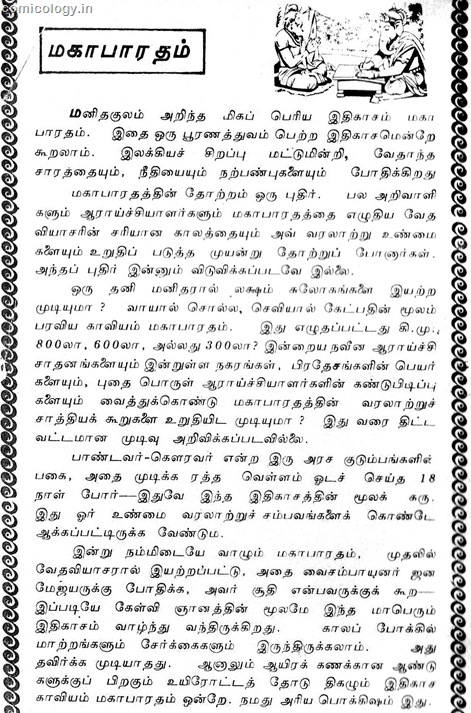 comicology.in
மகாபாரதம்
மனிதகுலம் அறிந்த மிகப் பெரிய இதிகாசம் மகா
பாரதம். இதை ஒரு பூரணத்துவம் பெற்ற இதிகாசமென்றே
கூறலாம். இலக்கியச் சிறப்பு மட்டுமின்றி, வேதாந்த
சாரத்தையும், நீதியையும் நற்பண்புகளையும் போதிக்கிறது
மகாபாரதத்தின் தோற்றம் ஒரு புதிர். பல அறிவாளி
களும் ஆராய்ச்சியாளர்களும் மகாபாரதத்தை எழுதிய வேத
வியாசரின் சரியான காலத்தையும் அவ் வரலாற்று உண்மை
களையும் உறுதிப் படுத்த முயன்று தோற்றுப் போனார்கள்.
அந்தப் புதிர் இன்னும் விடுவிக்கப்படவே இல்லை.
ஒரு தனி மனிதரால் லக்ஷம் சுலோகங்களை இயற்ற
முடியுமா? வாயால் சொல்ல, செவியால் கேட்பதின் மூலம்
பரவிய காவியம் மகாபாரதம். இது எழுதப்பட்டது கி.மு.,
800லா, 600லா, அல்லது 300லா? இன்றைய நவீன ஆராய்ச்சி
சாதனங்களையும் இன்றுள்ள நகரங்கள், பிரதேசங்களின் பெயர்
களையும், புதை பொருள் ஆராய்ச்சியாளர்களின் கண்டுபிடிப்பு
களையும் வைத்துக்கொண்டு மகாபாரதத்தின் வரலாற்றுச்
சாத்தியக் கூறுகளை உறுதியிட முடியுமா? இது வரை திட்ட
வட்டமான முடிவு அறிவிக்கப்படவில்லை.
பாண்டவர்-கௌரவர் என்ற இரு அரச குடும்பங்களில்
பகை, அதை முடிக்க ரத்த வெள்ளம் ஓடச் செய்த 18
நாள் போர்—இதுவே இந்த இதிகாசத்தின் மூலக் கரு.
இது ஓர் உண்மை வரலாற்றுச் சம்பவங்களைக் கொண்டே
ஆக்கப்பட்டிருக்க வேண்டும.
இன்று நம்மிடையே வாழும் மகாபாரதம், முதலில்
வேதவியாசரால் இயற்றப்பட்டு, அதை வைசம்பாயனர் ஜன
மேஜயருக்கு போதிக்க, அவர் சூதி என்பவருக்குக் கூற—
இப்படியே கேள்வி ஞானத்தின் மூலமே இந்த மாபெரும்
இதிகாசம் வாழ்ந்து வந்திருக்கிறது. காலப் போக்கில்
மாற்றங்களும் சேர்க்கைகளும் இருந்திருக்கலாம். அது
தவிர்க்க முடியாதது. ஆனாலும் ஆயிரக் கணக்கான ஆண்டு
களுக்குப் பிறகும் உயிரோட்டத் தோடு திகழும் இதிகாச
காவியம் மகாபாரதம் ஒன்றே. நமது அரிய பொக்கிஷம் இது.